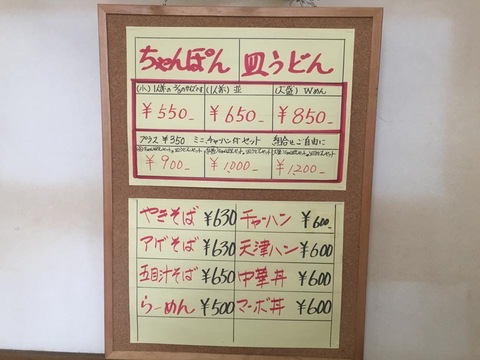 ちゃんぽん 皿うどん
(小) (1人前) 並 (大盛) Wめん
¥550- ¥650- ¥850-
プラス ¥350 ミニチャーハン付セット 組合せご自由に
¥900- ¥1,000- ¥1,200-
やきそば ¥630 チャーハン ¥600-
アゲそば ¥630 天津ハン ¥600
五目汁そば ¥650 中華丼 ¥600
らーめん ¥500 マーボ丼 ¥600